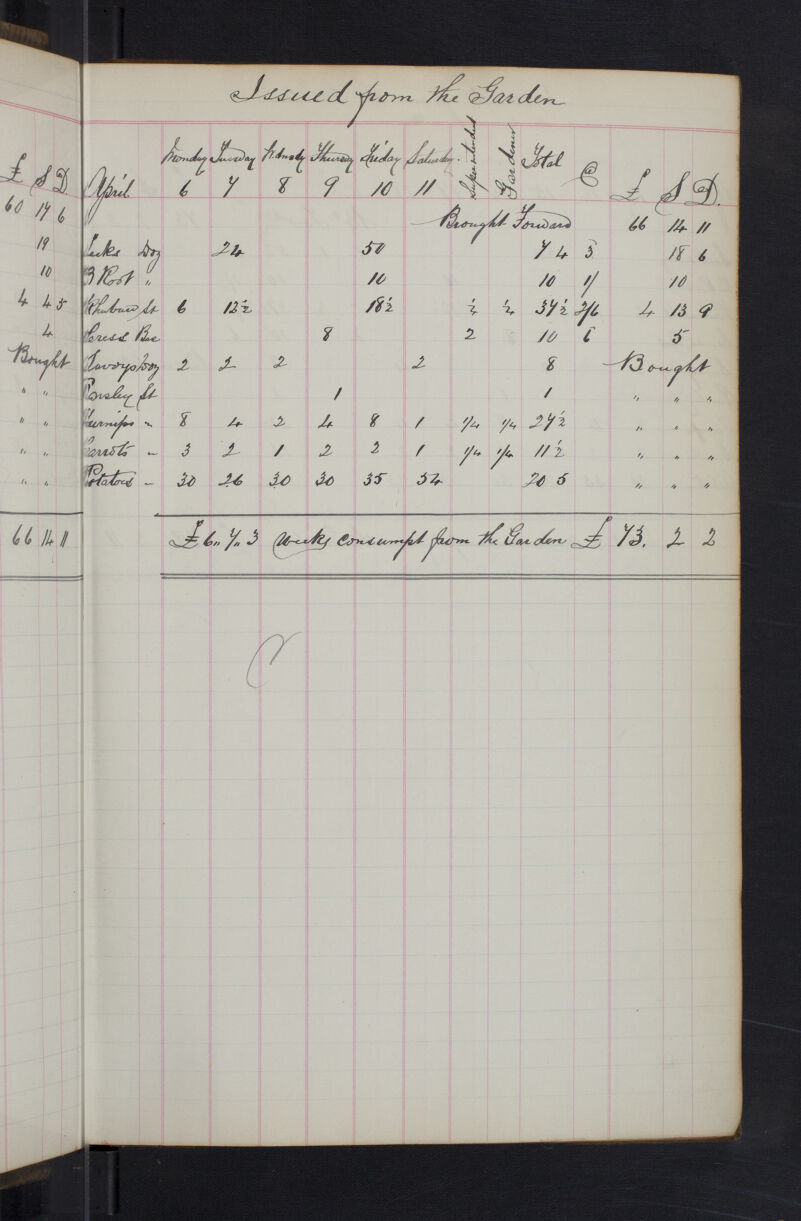 Issued from the Garden
£ S D
60 17 6
19
10
4 4 5
4
Bought
" "
" "
" "
" "
66 14 11
April Monday 6 Tuesday 7 Wednesday 8 Thursday 9 Friday 10 Saturday 11 Superintendent Gardener Total @ £ S D.
Brought Forward 66 14 11
Leeks Doz 24 50 74 3 18 6
B Root " 10 10 1/ 10
Rhubarb St 6 12½ 18½ ¼ ¼ 37½ 2/6 4 13 9
Cress Bas 8 2 10 6 5
Savoys Doz 2 2 2 2 8 Bought
Parsley St 1 1 " " "
Turnips " 8 4 2 4 8 1 1/4 1/4 27½ " " "
Carrots " 3 2 1 2 2 1 1/4 1/4 11½ " " "
Potatoes " 30 26 30 30 35 54 205 " " "
£6"7"3 weeks consumpt from the Garden £ 73. 2 2